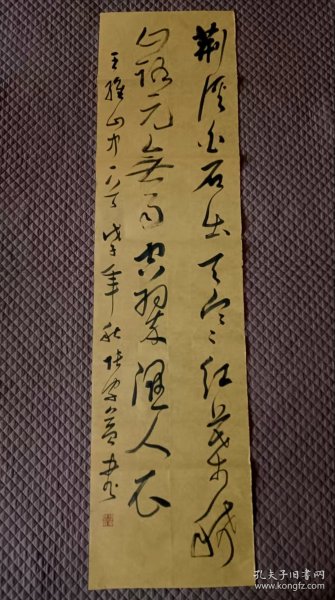 荆溪白石出天寒红叶稀
山路元无雨空翠湿人衣
王维山中一首 戊子年秋 张家益书
孔夫子旧书网
www.kongfz.com